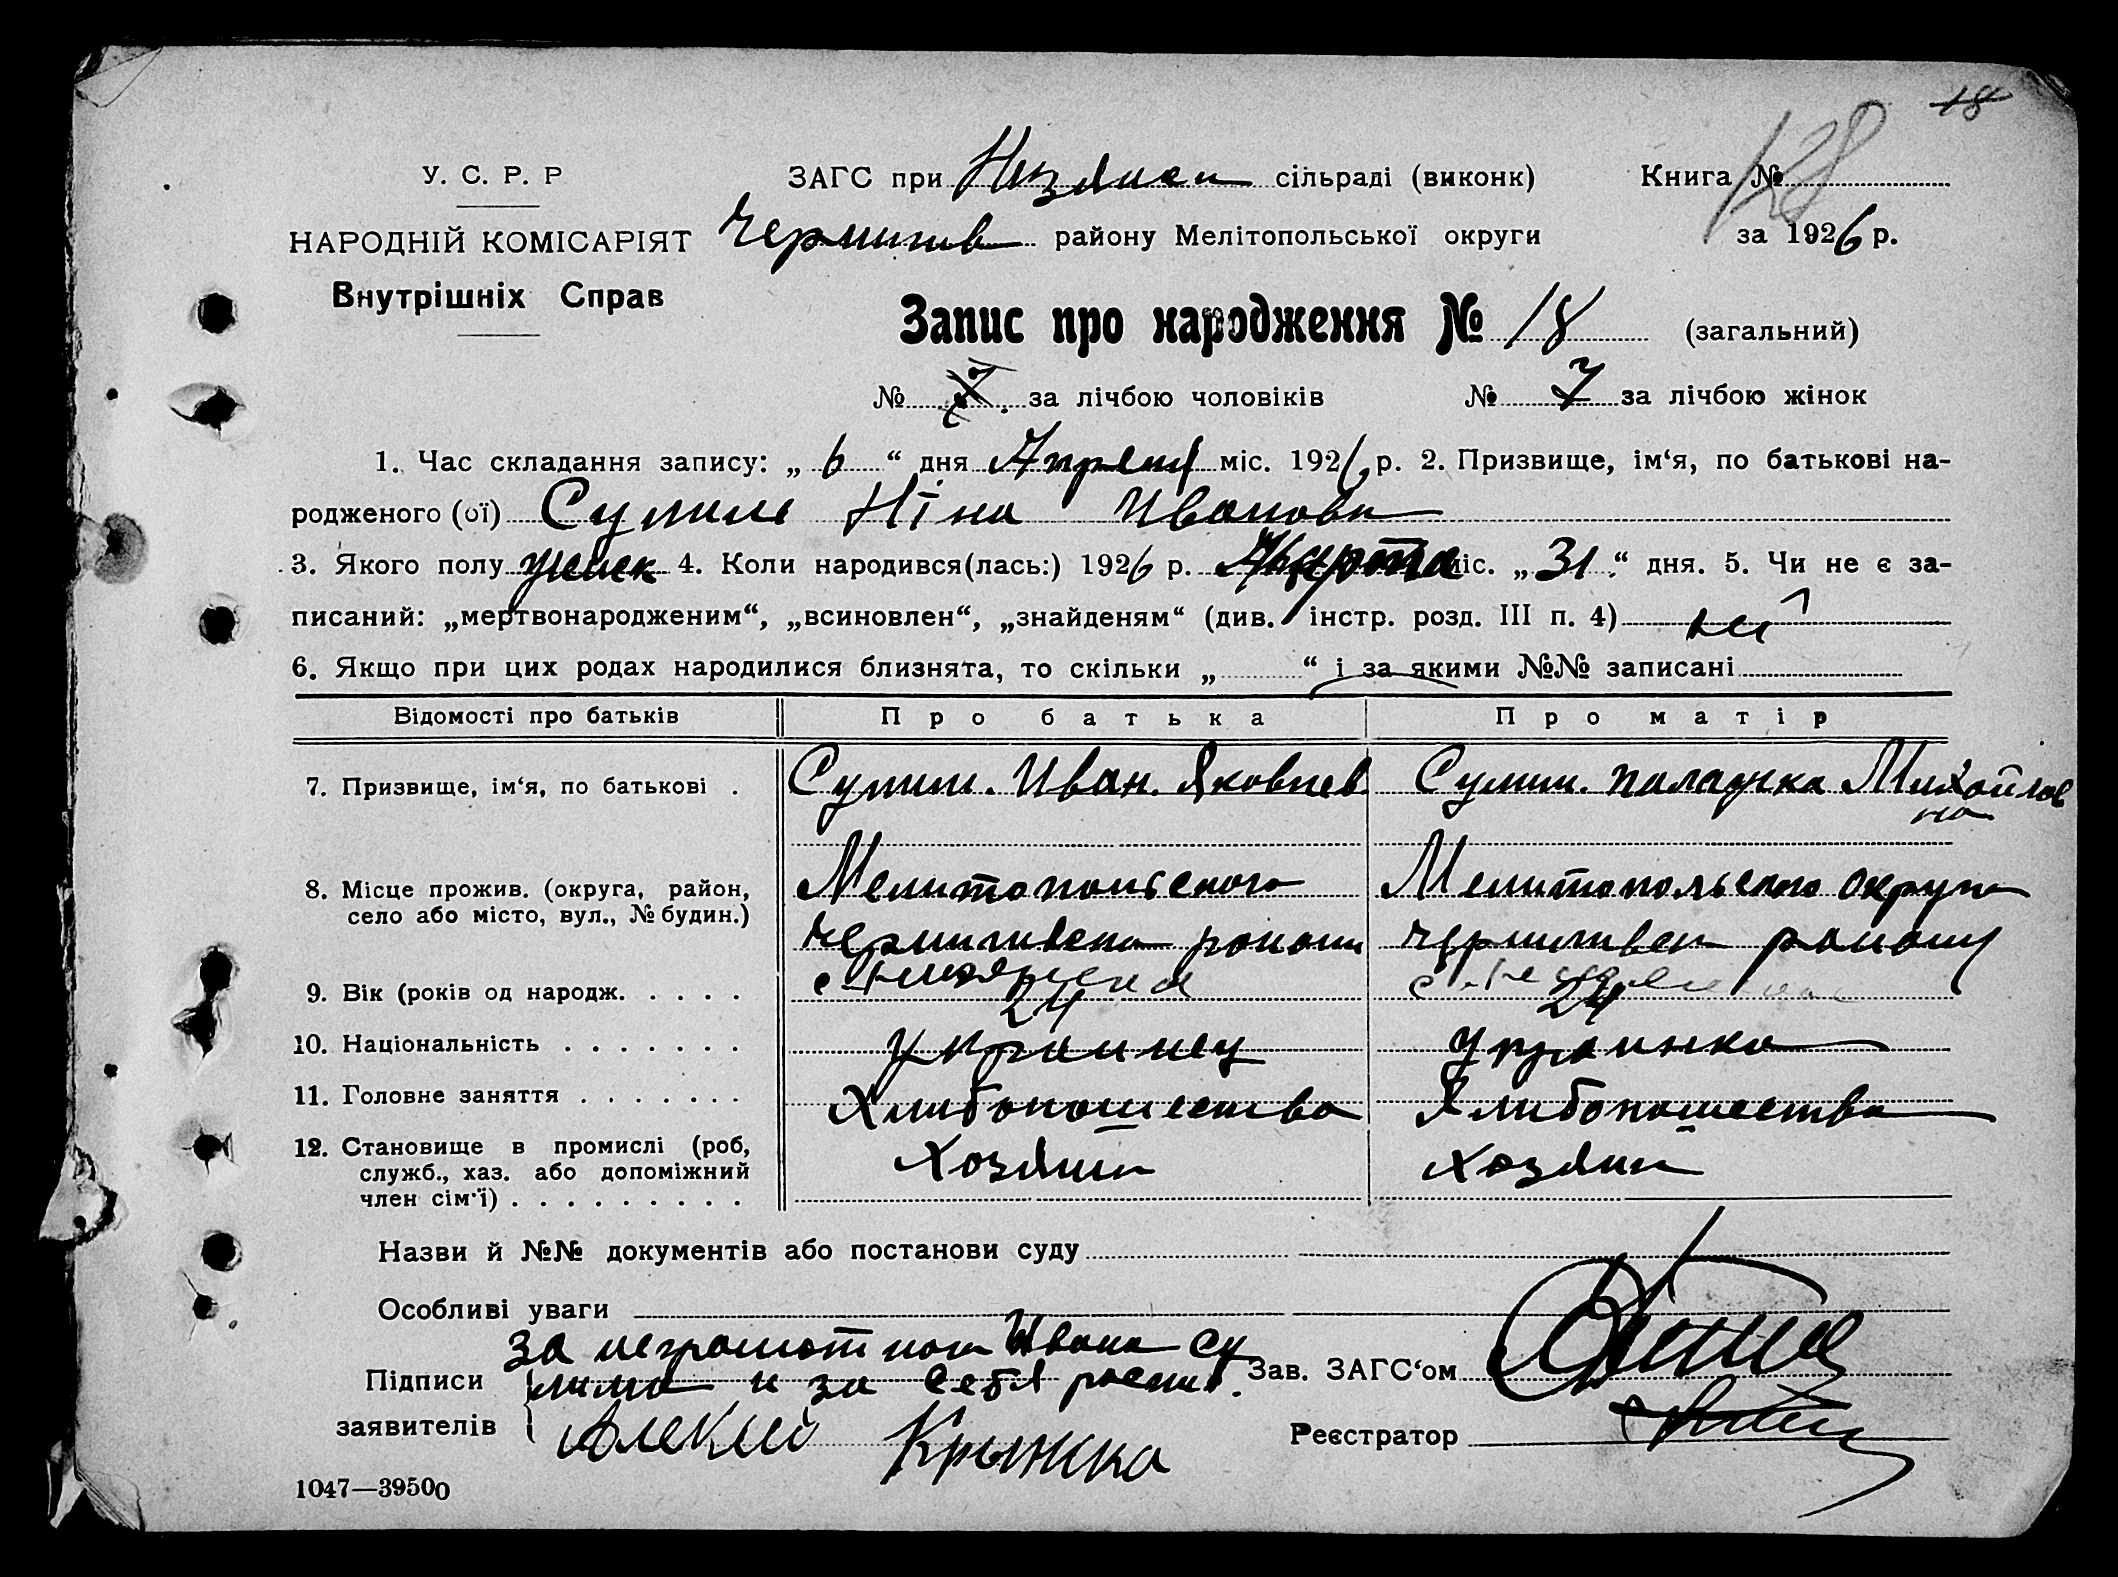 18
128
У. С. Р. Р
НАРОДНІЙ КОМІСАРІЯТ
Внутрішніх Справ
ЗАГС при Низянск сільраді (виконк)
Книга №
Чернигив району Мелітопольської округи
за 1926 р.
Запис про народження № 18 (загальний)
№ за лічбою чоловіків № 7 за лічбою жінок
1. Час складання запису: „ 6 “ дня Апреля міс. 1926 р. 2. Призвище, ім‘я, по батькові на-
родженого (ої) Сулим Ніна Иванова
3. Якого полу женск 4. Коли народився(лась:) 1926 р. Марта міс. „ 31 “ дня. 5. Чи не є за-
писаний: „мертвонародженим“, „всиновлен“, „знайденям“ (див. інстр. розд. III п. 4) ни
6. Якщо при цих родах народилися близнята, то скільки „ “ і за якими №№ записані
Відомості про батьків Про батька Про матір
7. Призвище, ім‘я, по батькові . Сулим. Иван. Яковлев. Сулим. Палажка Михайлов
на
8. Місце прожив. (округа, район, Мелитопольского Мелитопольского округа
село або місто, вул., № будин.) Чернигивского району Чернигивск району
9. Вік (років од народж. . . . . 24 24
10. Національність . . . . . . . Украинец Украинка
11. Головне заняття . . . . . . . Хлибопашества Хлибопашества
12. Становище в промислі (роб, Хозяин Хозяин
служб., хаз. або допоміжний
член сім‘ї) . . . . . . . . .
Назви й №№ документів або постанови суду
Особливі уваги
за неграмотного Ивана Су
Підписи лима и за себя роспис.
Зав. ЗАГС‘ом
заявителів Алексий Крыжка
Реєстратор
1047—39500